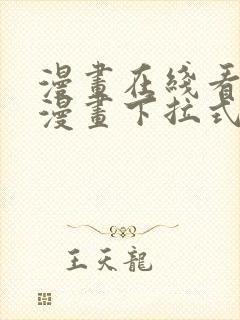 漫畫在綫看
漫畫下拉式
王天龍